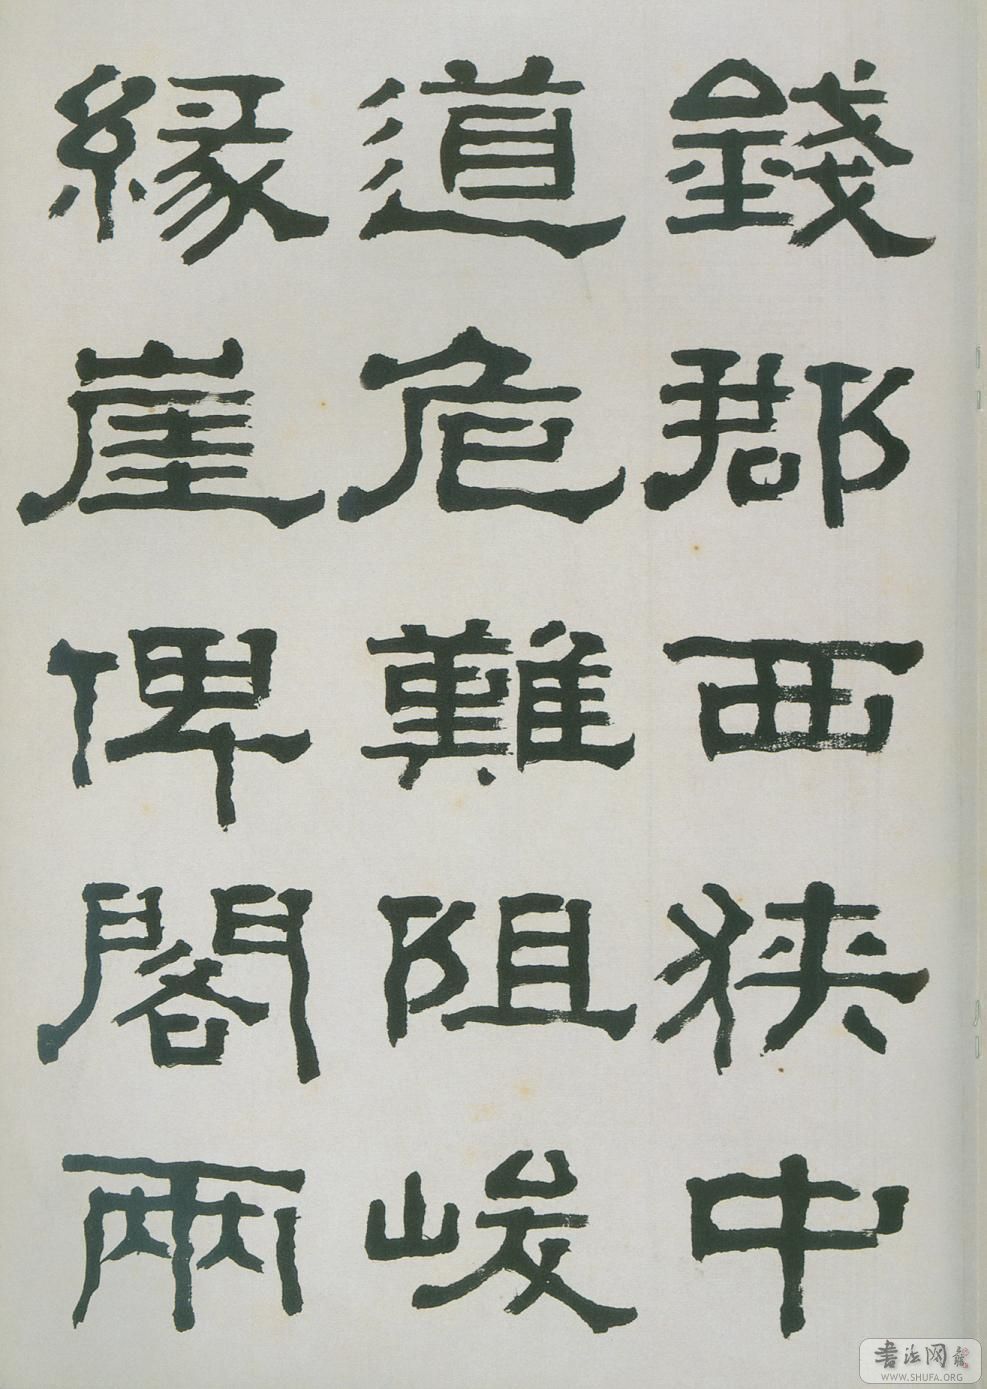 錢郡西狹中
道危難阻峻
緣崖俾閣兩
書法网
WWW.SHUFA.ORG